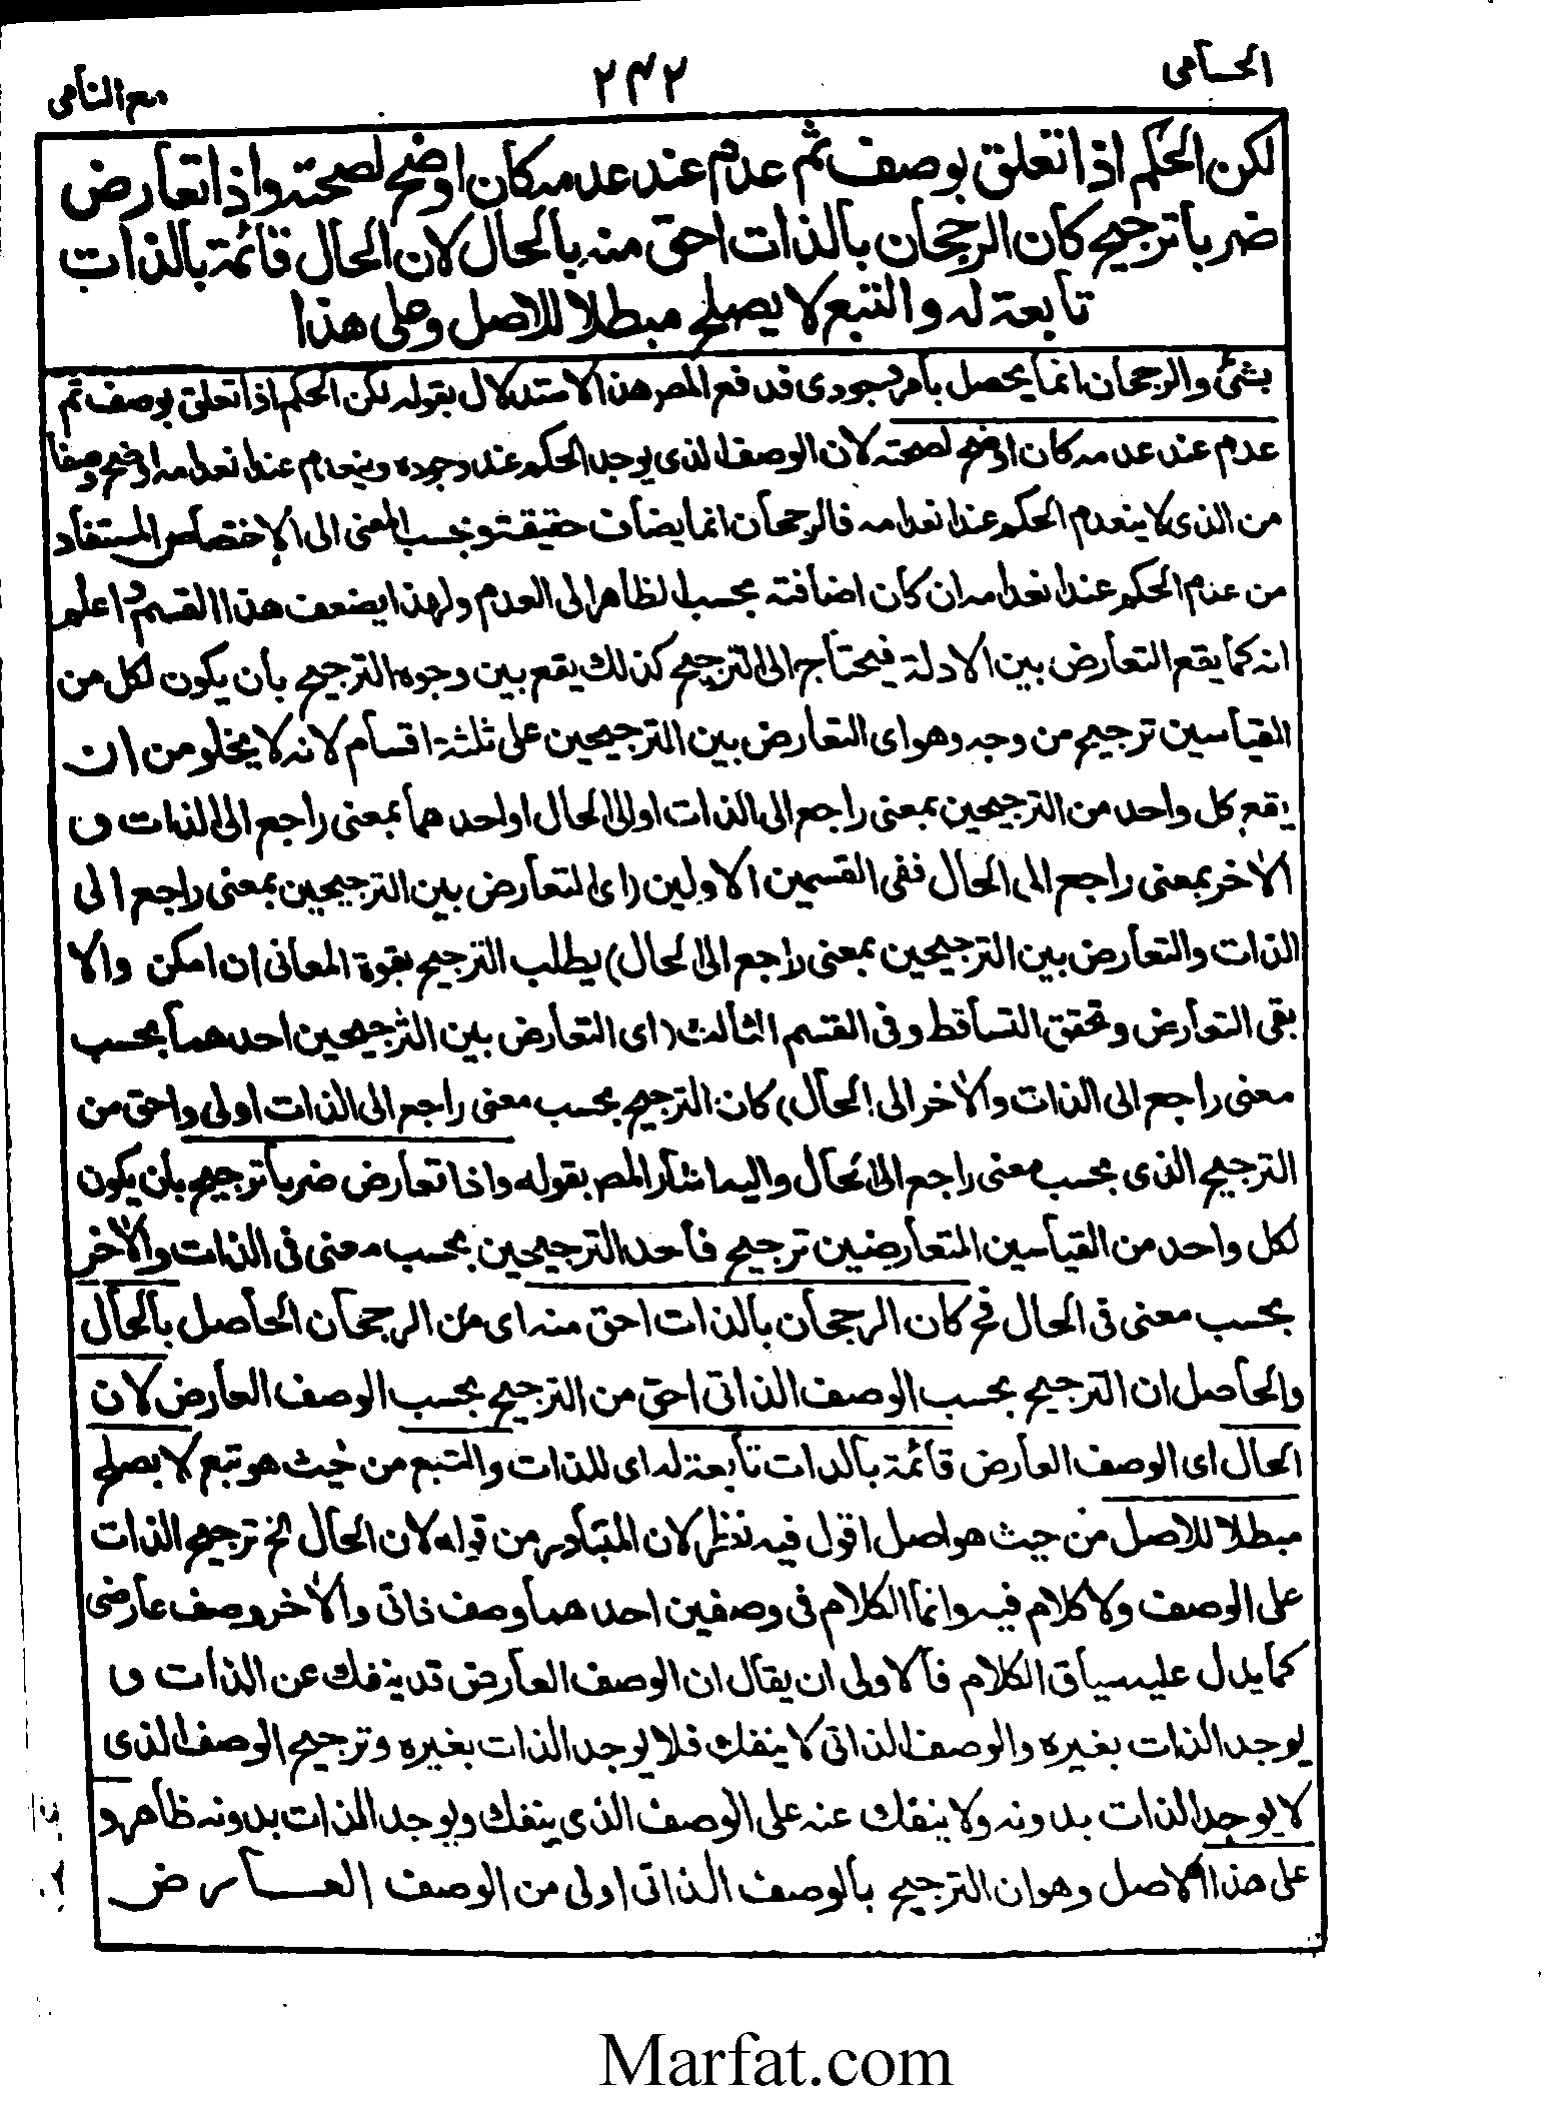 الحسامی
۲۴۲
مع النامی
لكن الحكم اذا تعلق بوصف ثم عدم عند عدمه كان اوضح لصحته واذا تعارض
ضربا ترجيح كان الرجحان بالذات احق منه بالحال لان الحال قائمة بالذات
تابعة له والتبع لا يصلح مبطلا للاصل وعلى هذا
بشئ والرجحان انما يحصل بامر وجودى فدفع المصر هذا الاستدلال بقوله لكن الحكم اذا تعلق بوصف ثم
عدم عند عدمه كان اوضح لصحته لان الوصف الذى يوجد الحكم عند وجوده وينعدم عند انعدامه اوضح وصفا
من الذى لا ينعدم الحكم عند انعدامه فالرجحان انما يضاف حقيقة وبحسب المعنى الى الاختصاص المستفاد
من عدم الحكم عند انعدامه ان كان اضافته بحسب الظاهر الى العدم ولهذا يضعف هذا القسم واعلم
انه كما يقع التعارض بين الادلة فيحتاج الى الترجيح كذلك يقع بين وجوه الترجيح بان يكون لكل من
القياسين ترجيح من وجه وهو اى التعارض بين الترجيحين على ثلثة اقسام لانه لا يخلو من ان
يقع كل واحد من الترجيحين بمعنى راجع الى الذات او الى الحال او احدهما بمعنى راجع الى الذات و
الاٰخر بمعنى راجع الى الحال ففى القسمين الاولين (اى التعارض بين الترجيحين بمعنى راجع الى
الذات والتعارض بين الترجيحين بمعنى راجع الى الحال) يطلب الترجيح بقوة المعانى ان امكن والا
بقى التعارض وتحقق التساقط وفى القسم الثالث (اى التعارض بين الترجيحين احدهما بحسب
معنى راجع الى الذات والاٰخر الى الحال) كان الترجيح بحسب معنى راجع الى الذات اولى واحق من
الترجيح الذى بحسب معنى راجع الى الحال واليه اشار المصر بقوله واذا تعارض ضربا ترجيح بان يكون
لكل واحد من القياسين المتعارضين ترجيح فاحد الترجيحين بحسب معنى فى الذات والاٰخر
بحسب معنى فى الحال فح كان الرجحان بالذات احق منه اى من الرجحان الحاصل بالحال
والحاصل ان الترجيح بحسب الوصف الذاتى احق من الترجيح بحسب الوصف العارض لان
الحال اى الوصف العارض قائمة بالذات تابعة له اى للذات والتبع من حيث هو تبع لا يصلح
مبطلا للاصل من حيث هو اصل اقول فيه نظر لان المتبادر من قوله لان الحال الخ ترجيح الذات
على الوصف ولا كلام فيه وانما الكلام فى وصفين احدهما وصف ذاتى والاٰخر وصف عارضى
كما يدل عليه سياق الكلام فالاولى ان يقال ان الوصف العارض قد ينفك عن الذات و
يوجد الذات بغيره والوصف الذاتى لا ينفك فلا يوجد الذات بغيره وترجيح الوصف الذى
لا يوجد الذات بدونه ولا ينفك عنه على الوصف الذى ينفك ويوجد الذات بدونه ظاهر و
على هذا الاصل وهو ان الترجيح بالوصف الذاتى اولى من الوصف العارض
Marfat.com